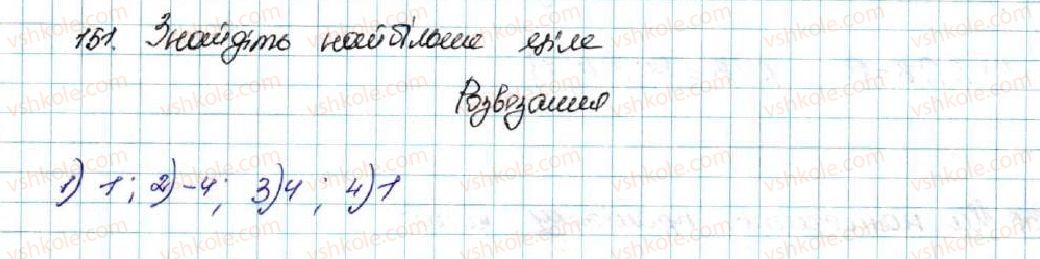 151. Знайдіть найбільше ціле
Розв'язання
1) 1; 2) -4; 3) 4; 4) 1
vshkole.com